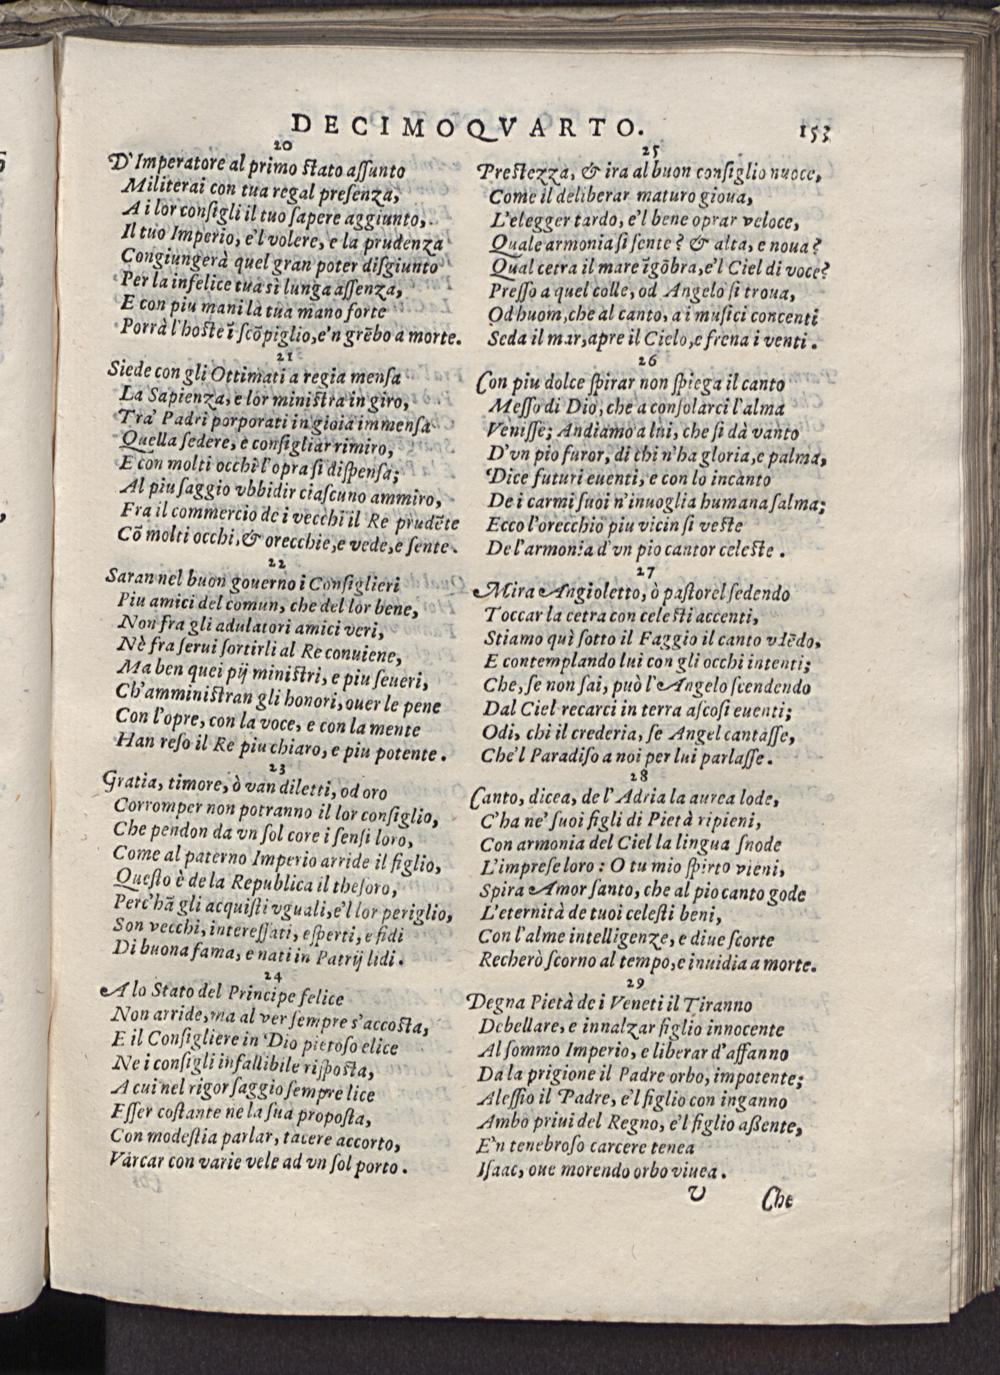 DECIMOQVARTO. 153
20
D'Imperatore al primo ſtato aſſunto
Militerai con tua regal preſenza,
A i lor conſigli il tuo ſapere aggiunto,
Il tuo Imperio, e'l volere, e la prudenza
Congiungerà quel gran poter diſgiunto
Per la infelice tua sì lunga aſſenza,
E con piu mani la tua mano forte
Porrà l'hoſte ĩ ſcõpiglio, e'n grẽbo a morte.
21
Siede con gli Ottimati a regia menſa
La Sapienza, e lor miniſtra in giro,
Tra' Padri porporati in gioia immenſa
Quella ſedere, e conſigliar rimiro,
E con molti occhi l'opra ſi diſpenſa;
Al piu ſaggio vbbidir ciaſcuno ammiro,
Fra il commercio de i vecchi il Re prudẽte
Cõ molti occhi, & orecchie, e vede, e ſente.
22
Saran nel buon gouerno i Conſiglieri
Piu amici del comun, che del lor bene,
Non fra gli adulatori amici veri,
Nè fra ſerui ſortirli al Re conuiene,
Ma ben quei pij miniſtri, e piu ſeueri,
Ch'amminiſtran gli honori, ouer le pene
Con l'opre, con la voce, e con la mente
Han reſo il Re piu chiaro, e piu potente.
23
Gratia, timore, ò van diletti, od oro
Corromper non potranno il lor conſiglio,
Che pendon da vn ſol core i ſenſi loro,
Come al paterno Imperio arride il figlio,
Queſto è de la Republica il theſoro,
Perc'hã gli acquiſti vguali, e'l lor periglio,
Son vecchi, intereſſati, eſperti, e fidi
Di buona fama, e nati in Patrij lidi.
24
A lo Stato del Principe felice
Non arride, ma al ver ſempre s'accoſta,
E il Conſigliere in Dio pietoſo elice
Ne i conſigli infallibile riſpoſta,
A cui nel rigor ſaggio ſempre lice
Eſſer coſtante ne la ſua propoſta,
Con modeſtia parlar, tacere accorto,
Varcar con varie vele ad vn ſol porto.
25
Preſtezza, & ira al buon conſiglio nuoce,
Come il deliberar maturo gioua,
L'elegger tardo, e'l bene oprar veloce,
Quale armonia ſi ſente? & alta, e noua?
Qual cetra il mare ĩgõbra, e'l Ciel di voce?
Preſſo a quel colle, od Angelo ſi troua,
Od huom, che al canto, a i muſici concenti
Seda il mar, apre il Cielo, e frena i venti.
26
Con piu dolce ſpirar non ſpiega il canto
Meſſo di Dio, che a conſolarci l'alma
Veniſſe; Andiamo a lui, che ſi dà vanto
D'vn pio furor, di chi n'ha gloria, e palma,
Dice futuri euenti, e con lo incanto
De i carmi ſuoi n'inuoglia humana ſalma;
Ecco l'orecchio piu vicin ſi veſte
De l'armonia d'vn pio cantor celeſte.
27
Mira Angioletto, ò paſtorel ſedendo
Toccar la cetra con celeſti accenti,
Stiamo quì ſotto il Faggio il canto vdẽdo,
E contemplando lui con gli occhi intenti;
Che, ſe non ſai, può l'Angelo ſcendendo
Dal Ciel recarci in terra aſcoſi euenti;
Odi, chi il crederia, ſe Angel cantaſſe,
Che'l Paradiſo a noi per lui parlaſſe.
28
Canto, dicea, de l'Adria la aurea lode,
C'ha ne' ſuoi figli di Pietà ripieni,
Con armonia del Ciel la lingua ſnode
L'impreſe loro: O tu mio ſpirto vieni,
Spira Amor ſanto, che al pio canto gode
L'eternità de tuoi celeſti beni,
Con l'alme intelligenze, e diue ſcorte
Recherò ſcorno al tempo, e inuidia a morte.
29
Degna Pietà de i Veneti il Tiranno
Debellare, e innalzar figlio innocente
Al ſommo Imperio, e liberar d'affanno
Da la prigione il Padre orbo, impotente;
Aleſſio il Padre, e'l figlio con inganno
Ambo priui del Regno, e'l figlio aßente,
E'n tenebroſo carcere tenea
Iſaac, oue morendo orbo viuea.
V Che